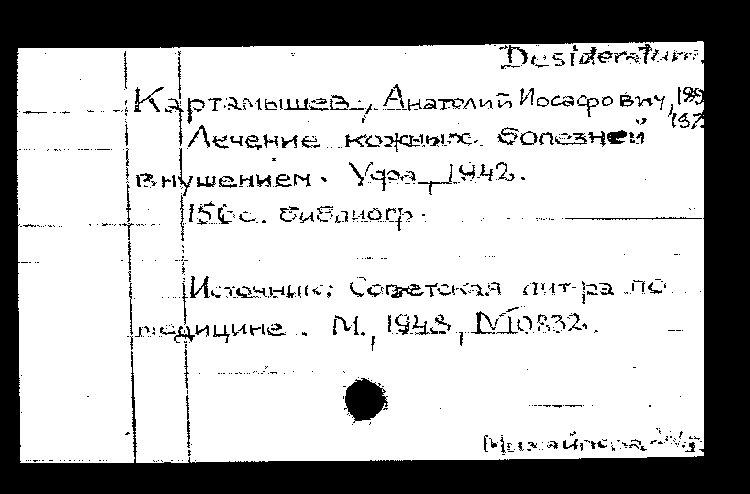 Desideratum.
Картамышев, Анатолий Иосафович,
Лечение кожных болезней
внушением. Уфа, 1942.
156 с. библиогр.
Источник: Советская лит-ра по
медицине. М., 1948, №10832.
Михайлова